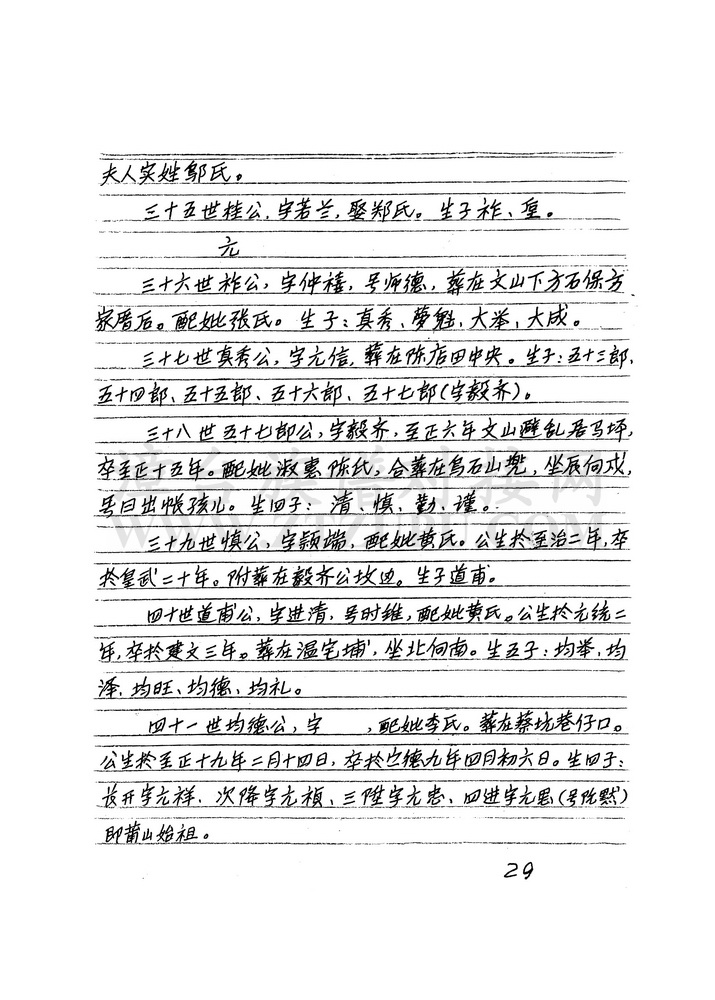 夫人实姓邬氏。
三十五世桂公,字若兰,娶郑氏。生子祚、垕。
元
三十六世祚公,字仲禧,号师德,葬在文山下方石保方
家厝后。配妣张氏。生子:真秀、夢魁、大举、大成。
三十七世真秀公,字允信,葬在陈店田中央。生子:五十三郎,
五十四郎、五十五郎、五十六郎、五十七郎(字毅齐)。
三十八世五十七郎公,字毅齐,至正六年文山避乱居马坪,
卒至正十五年。配妣淑惠陈氏,合葬在乌石山兜,坐辰向戍,
号曰出帐孩儿。生四子:清、慎、勤、谨。
三十九世慎公,字颖端,配妣黄氏。公生於至治二年,卒
於皇武二十年。附葬在毅齐公坟边。生子道甫。
四十世道甫公,字进清,号时维,配妣黄氏。公生於元统二
年,卒於建文三年。葬在温宅埔,坐北向南。生五子:均举,均
泽,均旺、均德、均礼。
四十一世均德公,字 ,配妣李氏。葬在蔡坑巷仔口。
公生於至正十九年二月十四日,卒於宣德九年四月初六日。生四子:
长开字元祥、次降字元祯、三陞字元忠、四进字元思(号 默)
即莆山始祖。
29